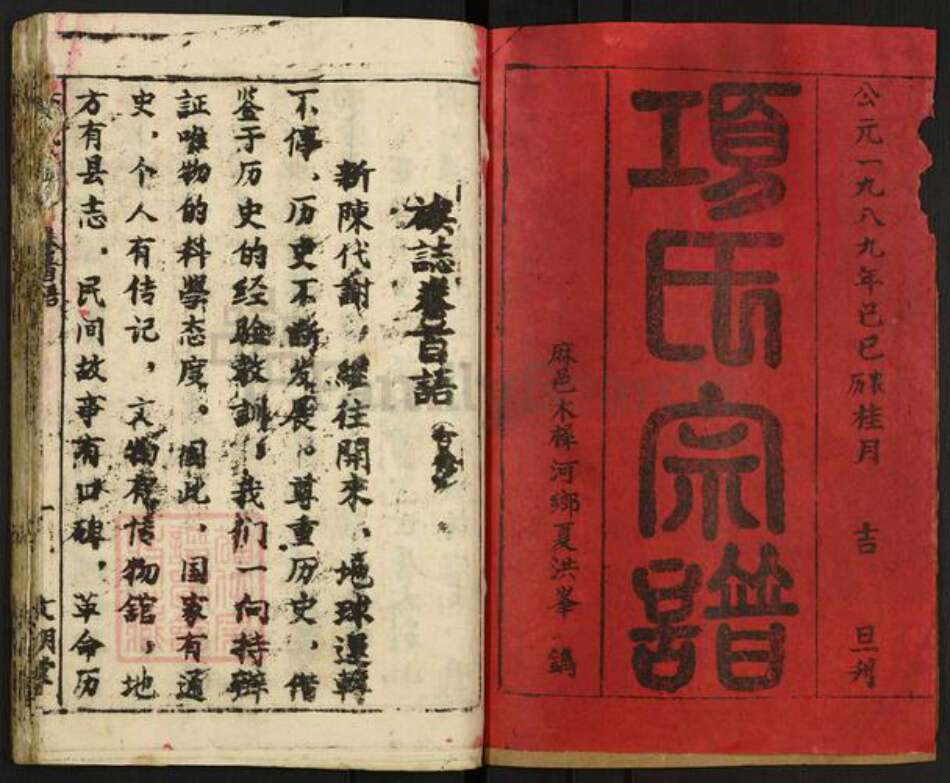 公元一九八九年已巳 桂月 吉 旦刋
項氏宗譜
麻邑木樨河鄉夏洪峯 鐫
族誌卷首語
新陳代謝，繼往開来，地球運轉
不停，历史不断发展。尊重历史，借
鉴于历史的经验教訓。我们一向持辩
証唯物的科學态度。因此，国家有通
史，个人有传记，文物有博物舘，地
方有县志，民间故事有口碑，革命历
卷首語
一
文明堂